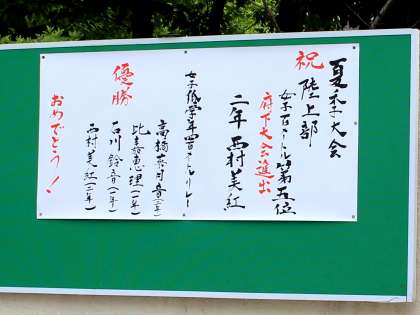 祝
夏季大会
陸上部
女子百メートル第五位
府下大会進出
二年 西村美紅
女子低学年四百メートルリレー
優勝
高橋奈月音(二年)
比嘉恵理(一年)
石川鈴音(一年)
西村美紅(二年)
おめでとう!